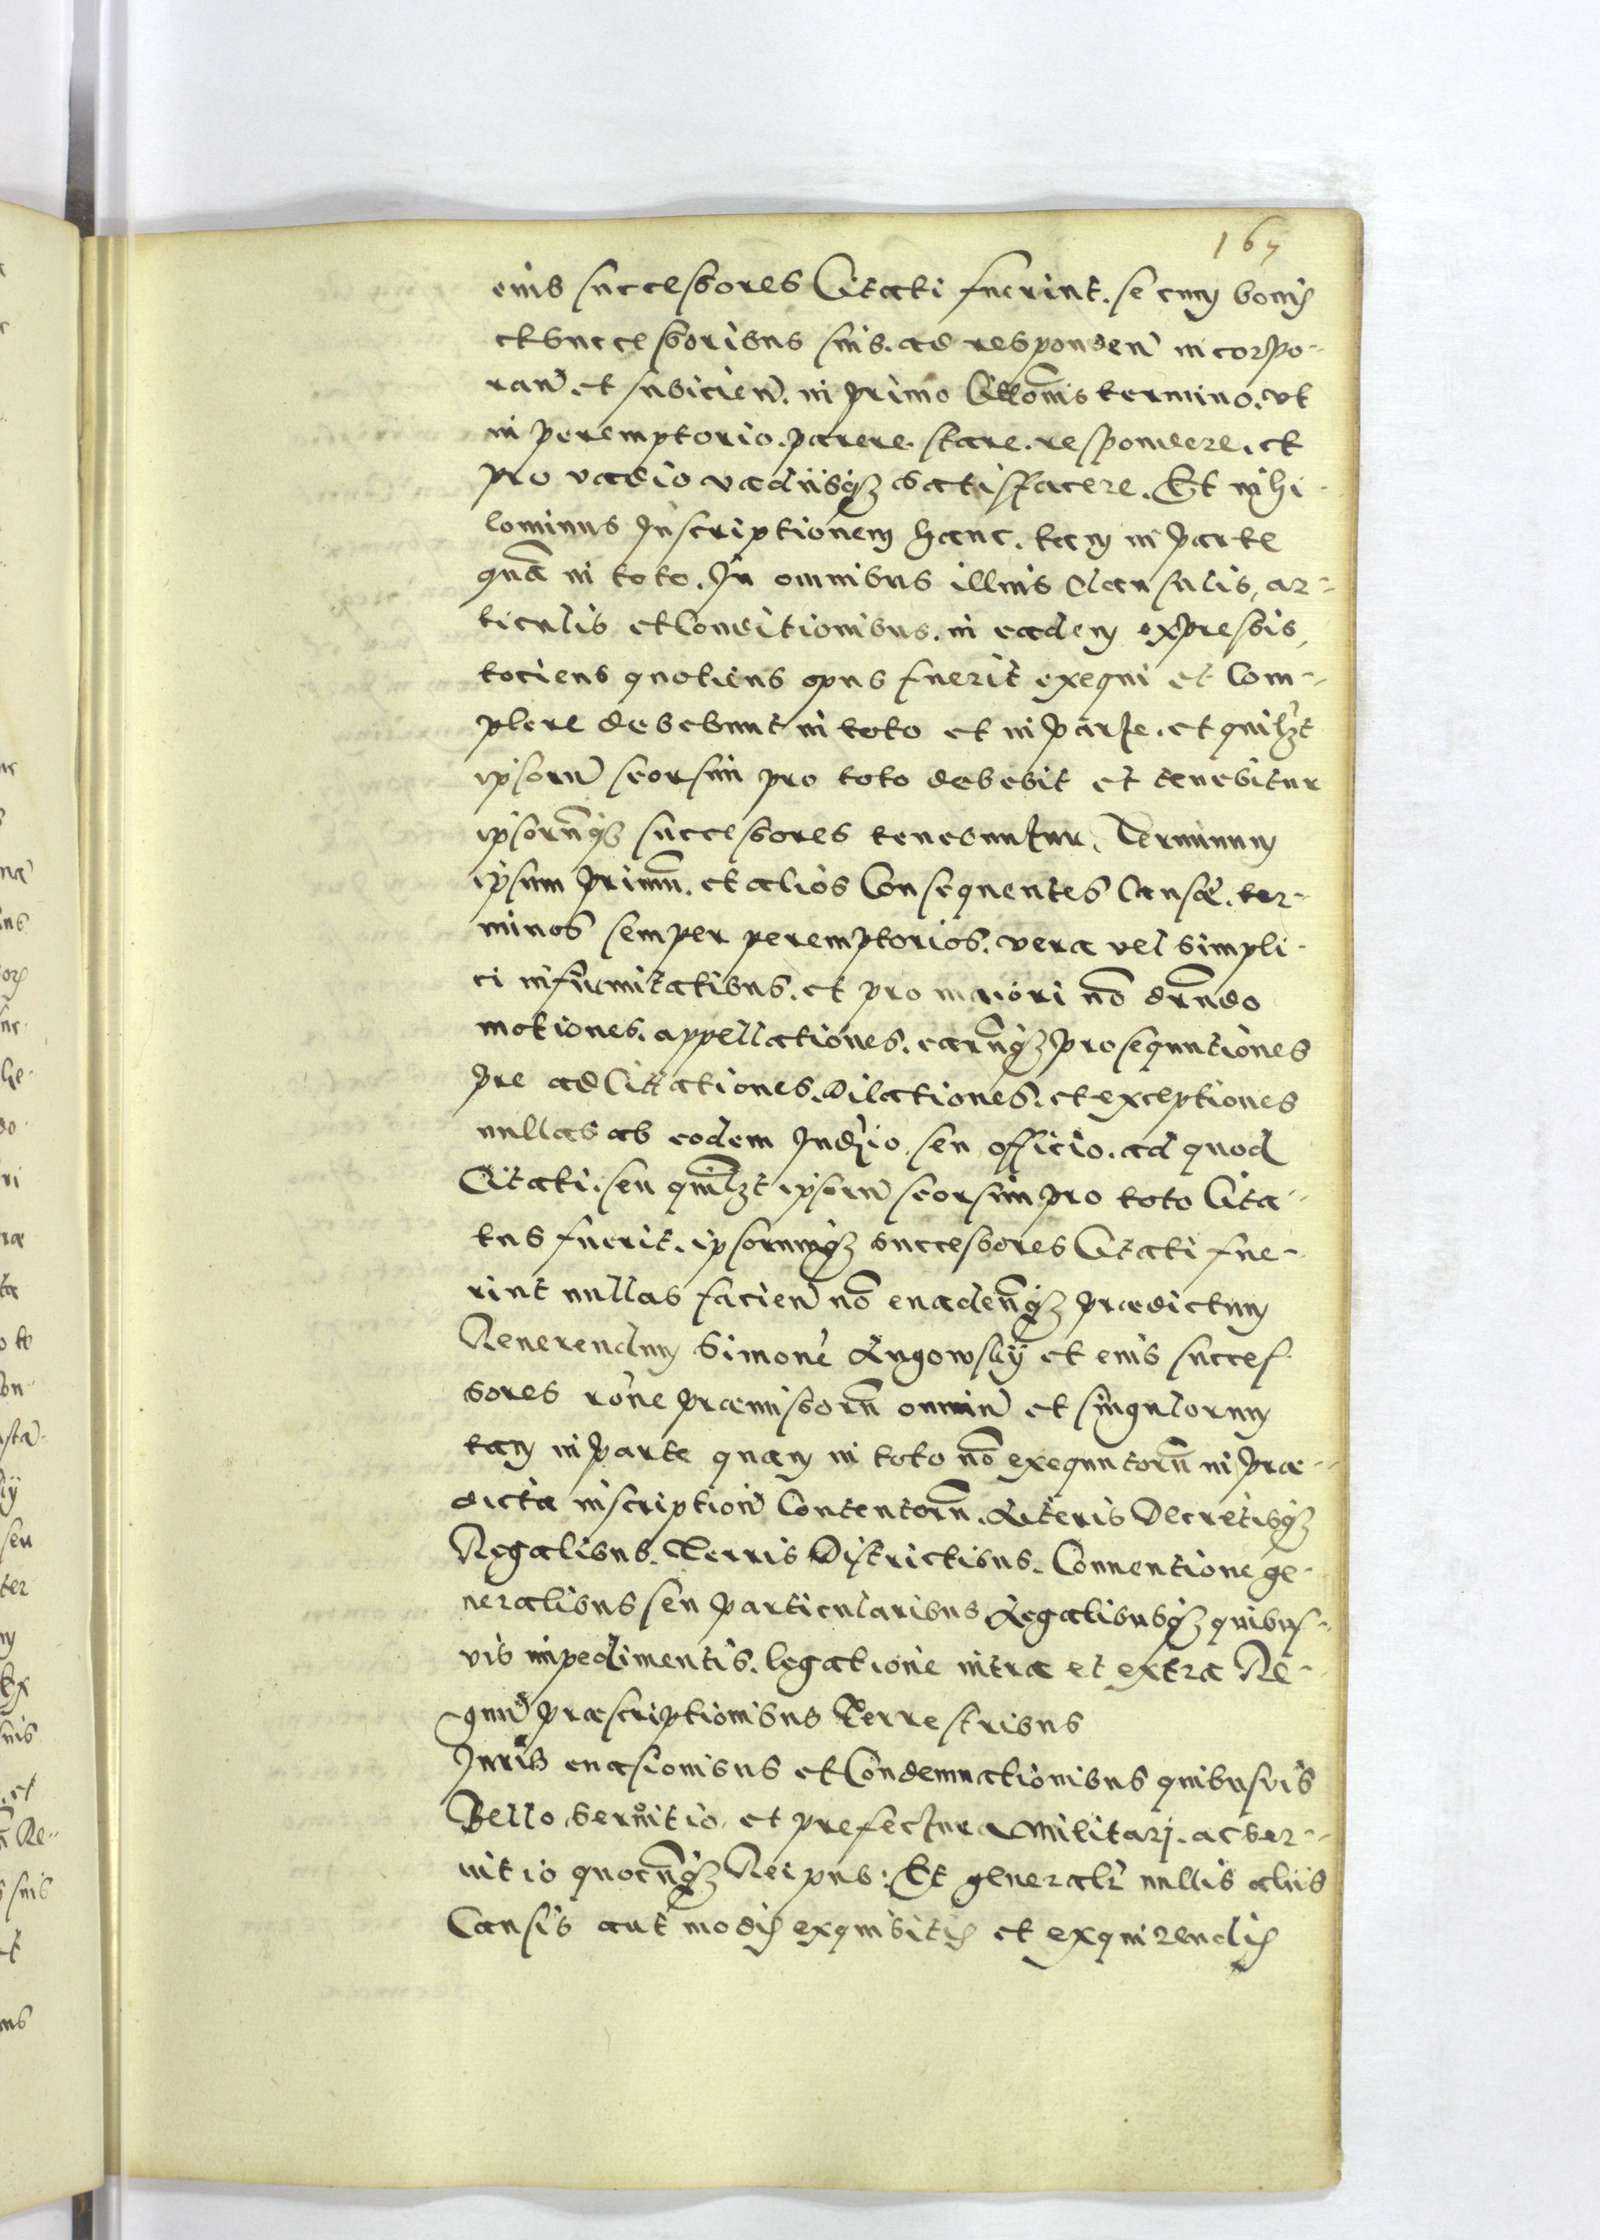 167
eius successores Citati fuerint. se cum bonis
et successoribus suis. ad responden̄ incorpo-
ran̄. et subicien̄. in primo Citōnis termino. vt
in peremptorio. parere. stare. respondere. et
pro vadio vadiisq3 satisfacere. Et nihi-
lominus Inscriptionem hanc. tam in parte
quā in toto. In omnibus illius Clausulis, ar-
ticulis et Conditionibus. in eadem expressis,
tociens quotiens opus fuerit exequi et Com-
plere debebunt in toto et in parte. et quilꝫt
ipsorū seorsim pro toto debebit et tenebitur
ipsorūq3 successores tenebuntur. Terminum
ipsum primū. et alios Consequentes Causae. ter-
minos semper peremptorios. vera vel simpli-
ci infirmitatibus. et pro maiori nō dān̄do
motiones. appellationes. earūq3 prosequutiones
pre ad Citationes. Dilationes. et exceptiones
nullas ab eodem Iudīo. seu officio. ad quod
Citati. seu quilꝫt ipsorū seorsim pro toto Cita-
tus fuerit. ipsorumq3 successores Citati fue-
rint nullas facien̄ nō euadenq3 praedictum
Reuerendum Simonē Lugowskÿ et eius succes-
sores rōne praemissorū omniū et singulorum
tam in parte quam in toto nō exequutorū in prae-
dicta inscriptioñ Contentorū. Literis Decretisq3
Regalibus. Terris Districtibus. Conuentione ge-
neralibus seu particularibus Legalibusq3 quibus-
vis impedimentis. legatione intra et extra Re-
gnū praescriptionibus Terrestribus
Iuris euasionibus et Condemnationibus quibusuis
Bello seruitio. et prefectura Militari. ac ser-
uitio quocūq3 Reipub: Et generalr̄ nullis aliis
Causis aut modis exquisitis et exquirendis